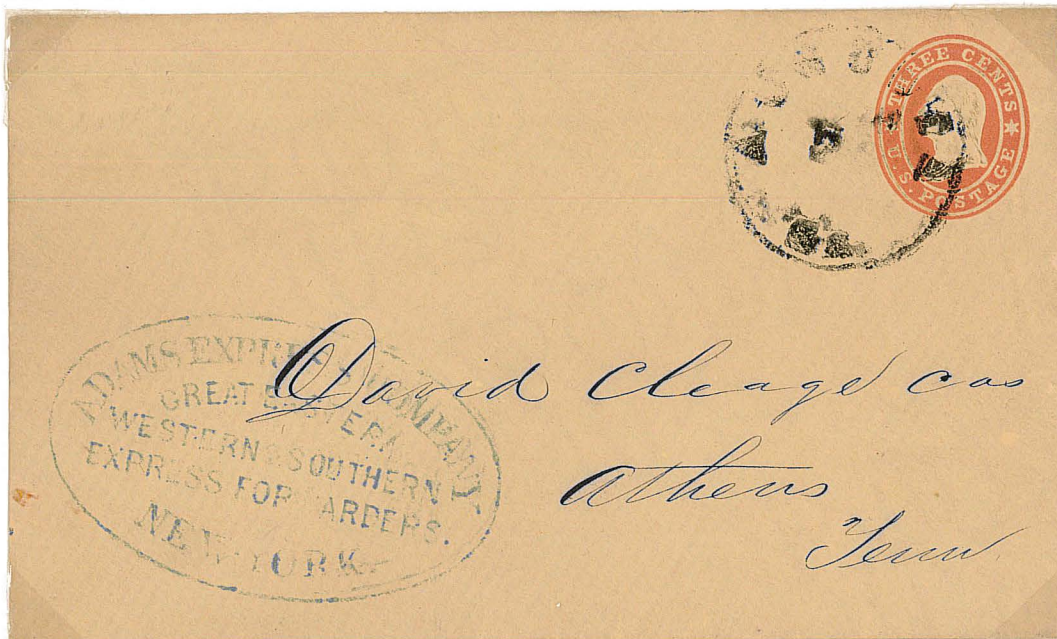 THREE CENTS
U. S. POSTAGE
ADAMS EXPRESS COMPANY
GREAT EASTERN
WESTERN & SOUTHERN
EXPRESS FORWARDERS.
NEW-YORK
David Cleage
Athens
Tenn